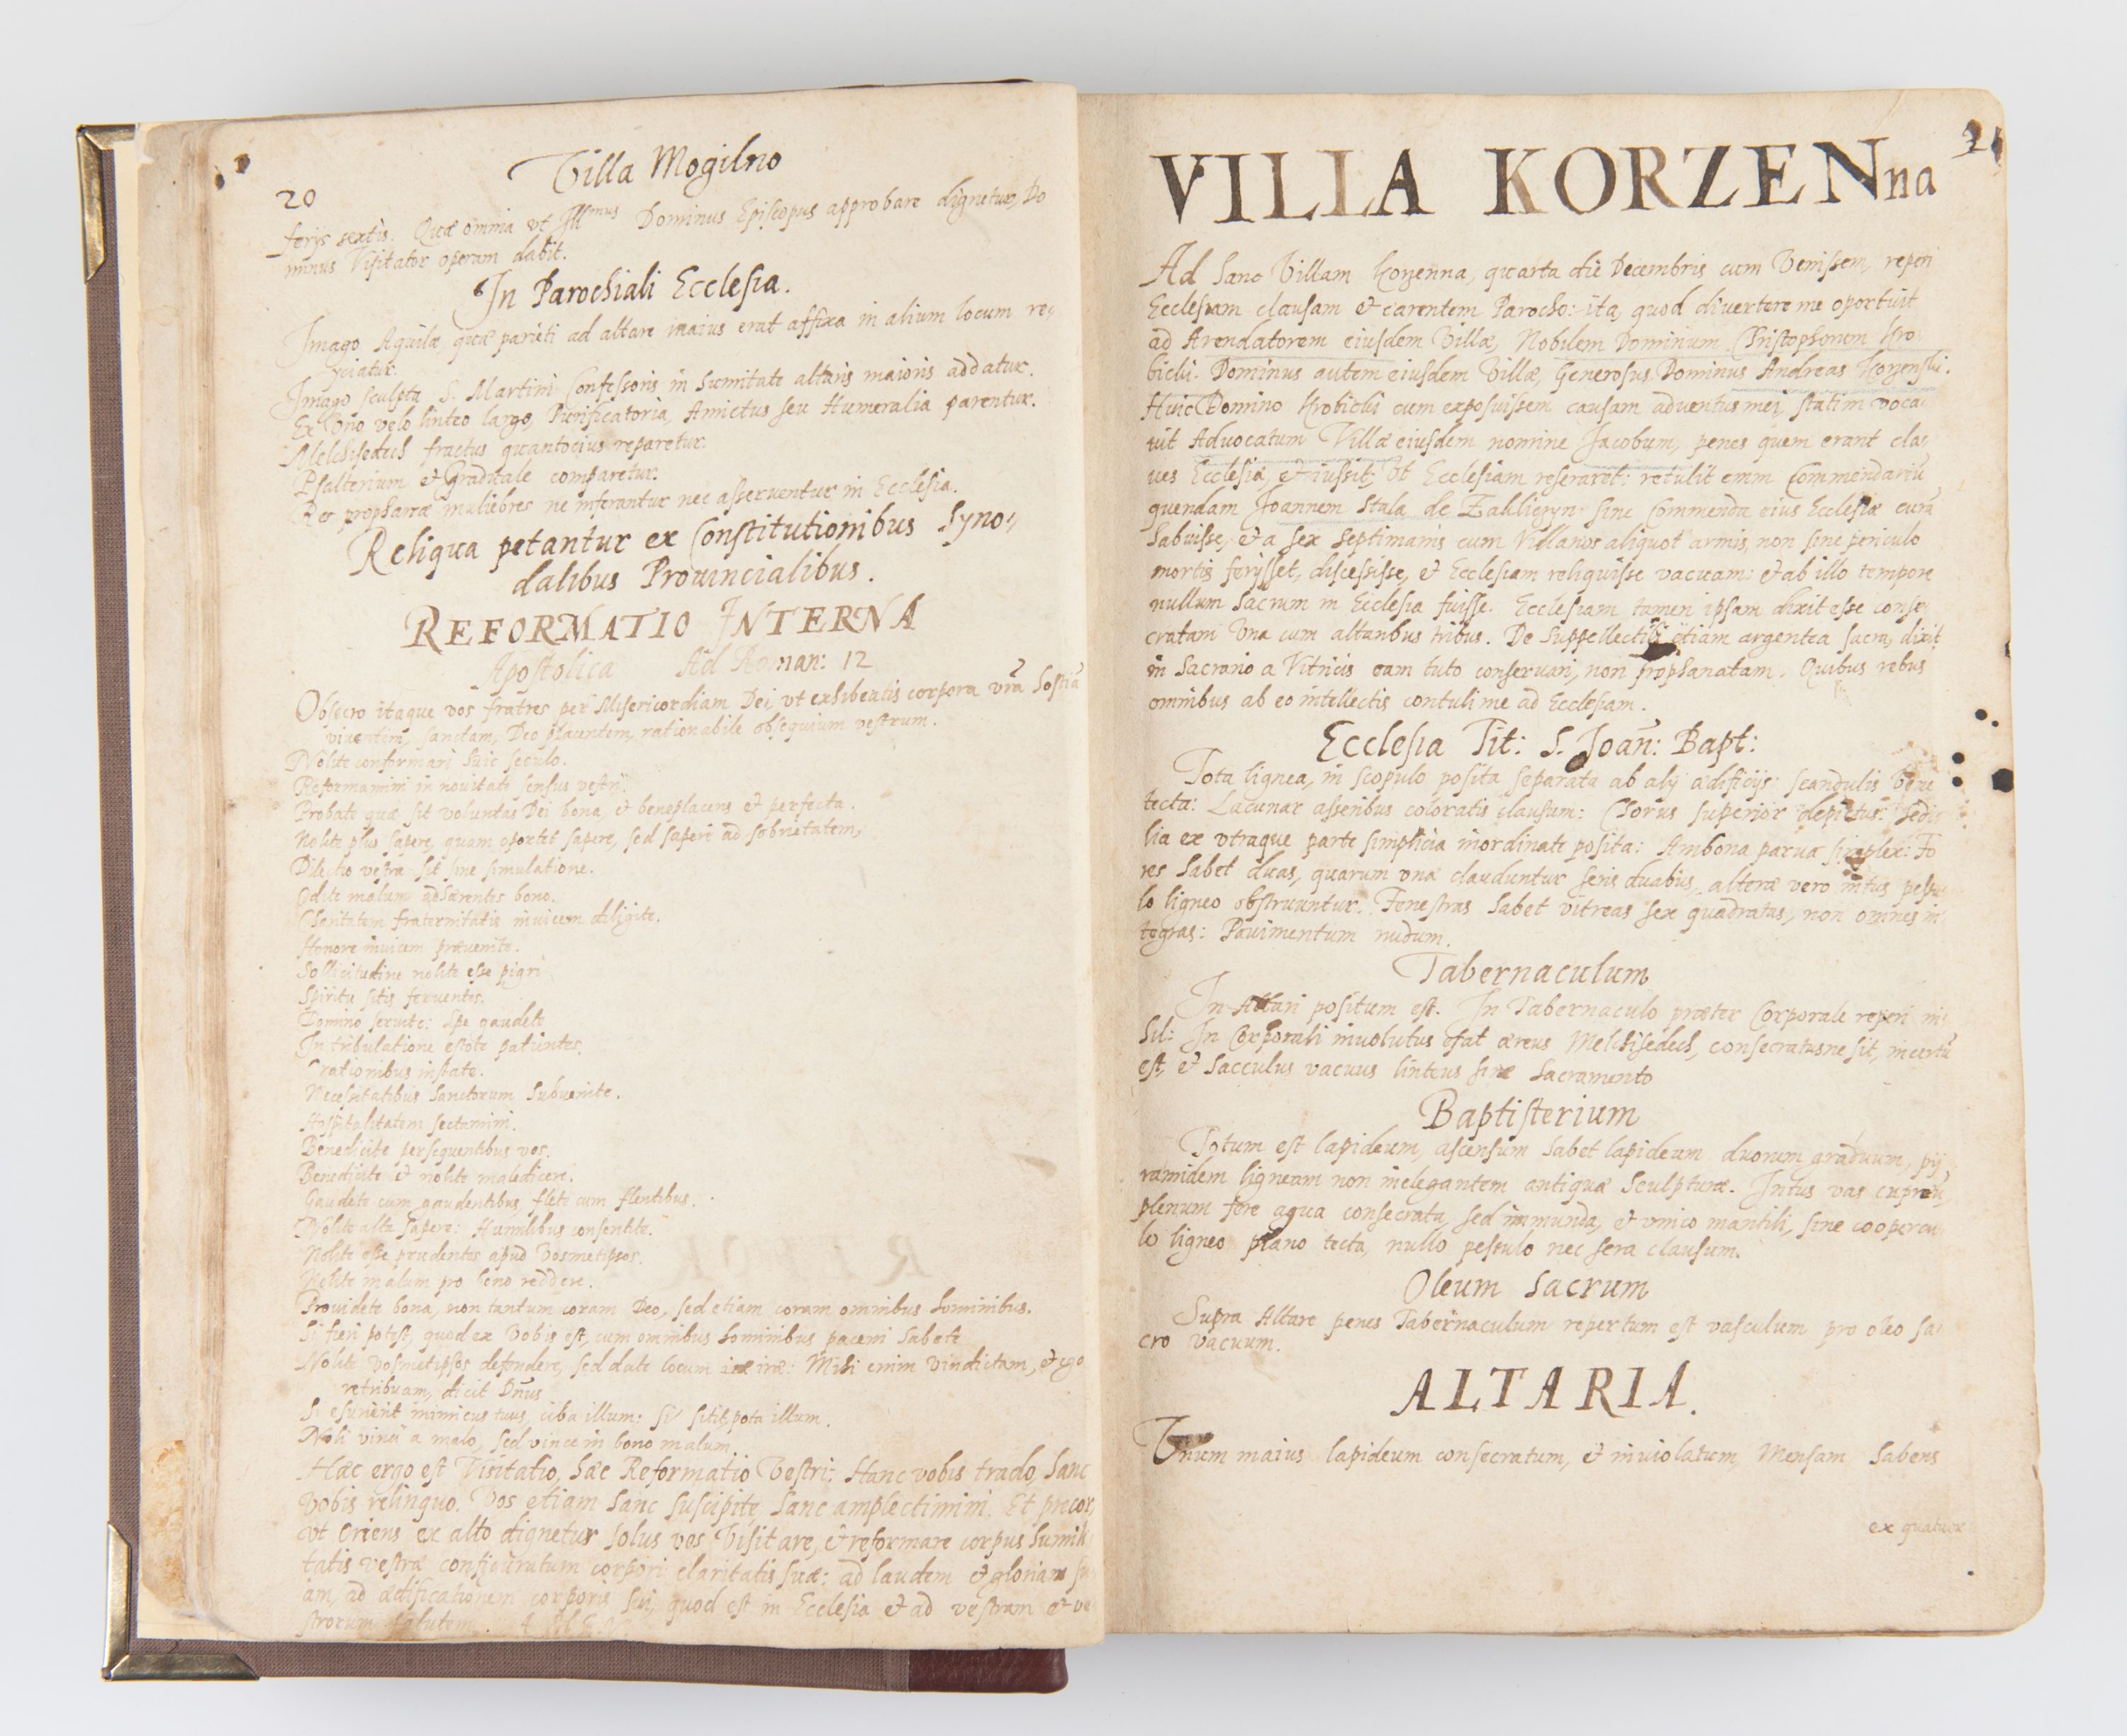 20
Villa Mogilno
ferijs sextis. Quæ omnia vt Illmus Dominus Episcopus approbare dignetur, Do
minus Visitator operam dabit.
In Parochiali Ecclesia.
Imago Aquilæ, quæ parieti ad altare maius erat affixa in alium locum re,
yciatur.
Imago sculpta S. Martini Confessoris in sumitate altaris maioris addatur.
Ex Vno velo linteo largo, Purificatoria, Amictus seu Humeralia parentur.
Melchisedech fractus quantocius reparetur.
Psalterium et Graduale comparetur.
Res prophanæ muliebres ne inferantur nec asseruentur in Ecclesia.
Reliqua petantur ex Constitutionibus Syno,
dalibus Prouincialibus.
REFORMATIO INTERNA
Apostolica Ad Roman: 12
Obsecro itaque vos fratres per Misericordiam Dei, vt exhibeatis corpora vrã hostiã
viuentem, sanctam, Deo placentem, rationabile obsequium vestrum.
Nolite conformari huic seculo.
Reformamini in nouitate sensus vestri.
Probate quæ sit voluntas Dei bona, et beneplacens et perfecta.
Nolite plus sapere, quam oportet sapere, sed sapere ad sobrietatem,
Dilectio vestra sit sine simulatione.
Odite malum adhærentes bono.
Charitatem fraternitatis inuicem diligite.
Honore inuicem præuenite.
Sollicitudine nolite esse pigri
Spiritu sitis feruentes.
Domino seruite: Spe gaudete
In tribulatione estote patientes.
Orationibus instate.
Necessitatibus Sanctorum Subuenite.
Hospitalitatem sectamini.
Benedicite persequentibus vos.
Benedicite et nolite maledicere.
Gaudete cum gaudentibus, flete cum flentibus.
Nolite alta sapere: Humilibus consentite.
Nolite esse prudentes apud Vosmetipsos.
Nolite malum pro bono reddere.
Prouidete bona, non tantum coram Deo, sed etiam coram omnibus hominibus.
Si fieri potest, quod ex Vobis est, cum omnibus hominibus pacem habete
Nolite Vosmetipsos defendere, sed date locum iræ: Mihi enim Vindictam, et ego
retribuam, dicit Dñus
Si esurierit inimicus tuus, ciba illum: si sitit, pota illum.
Noli vinci a malo, sed vince in bono malum
Hæc ergo est Visitatio, hæc Reformatio Vestri: Hanc vobis trado, hanc
Vobis relinquo. Vos etiam hanc suscipite, hanc amplectimini. Et precor,
vt Oriens ex alto dignetur solus vos Visitare, et reformare corpus humili
tatis vestræ configuratum corpori claritatis suæ: ad laudem et gloriam su
am, ad ædificationem corporis sui, quod est in Ecclesia et ad vestram et ve
strorum salutem. AMEN
21
VILLA KORZENna
Ad hanc Villam Korzenna, quarta die Decembris cum Venissem, reperi
Ecclesiam clausam et carentem Parocho: ita, quod diuertere me oportuit
ad Arendatorem eiusdem Villæ, Nobilem Dominum Christophorum Kro,
bicki. Dominus autem eiusdem Villæ, Generosus Dominus Andreas Korzenski.
Huic Domino Krobicki cum exposuissem causam aduentus mei, statim voca,
uit Aduocatum Villæ eiusdem nomine Jacobum, penes quem erant cla,
ues Ecclesiæ, et iussit, Vt Ecclesiam reseraret: retulit enim Commendariũ
quendam Joannem Stala de Zakliczyn sine Commenda eius Ecclesiæ curã
habuisse, et a sex septimanis cum Villanos aliquot armis, non sine periculo
mortis ferijsset, discessisse, et Ecclesiam reliquisse vacuam: et ab illo tempore
nullum Sacrum in Ecclesia fuisse. Ecclesiam tamen ipsam dixit esse conse,
cratam Vna cum altaribus tribus. De Suppellectili etiam argentea sacra, dixit
in Sacrario a Vitricis eam tuto conseruari, non prophanatam. Quibus rebus
omnibus ab eo intellectis contuli me ad Ecclesiam.
Ecclesia Tit: S. Joañ: Bapt:
Tota lignea, in scopulo posita separata ab alijs ædificijs: scandulis bene
tecta: Lacunar asseribus coloratis clausum: Chorus superior depictus: Sedi,
lia ex vtraque parte simplicia inordinate posita: Ambona parua simplex: Fo
res habet duas, quarum vnæ clauduntur seris duabus, alteræ vero intus pessu
lo ligneo obstruuntur. Fenestras habet vitreas sex quadratas, non omnes in
tegras: Pauimentum nudum.
Tabernaculum
In Altari positum est. In Tabernaculo præter Corporale reperi ni,
hil: In Corporali inuolutus erat æreus Melchisedech, consecratusne sit, incertũ
est, et Sacculus vacuus linteus sine Sacramento
Baptisterium
Totum est lapideum, ascensum habet lapideum duorum graduum, py
ramidem ligneam non inelegantem antiquæ Sculpturæ. Intus vas cupreũ,
plenum fere aqua consecrata, sed immunda, et vnico mantili, sine coopercu
lo ligneo plano tecta, nullo pessulo nec sera clausum.
Oleum Sacrum
Supra Altare penes Tabernaculum repertum est vasculum pro oleo sa,
cro vacuum.
ALTARIA.
Vnum maius lapideum consecratum, et inuiolatum, Mensam habens
ex quatuor